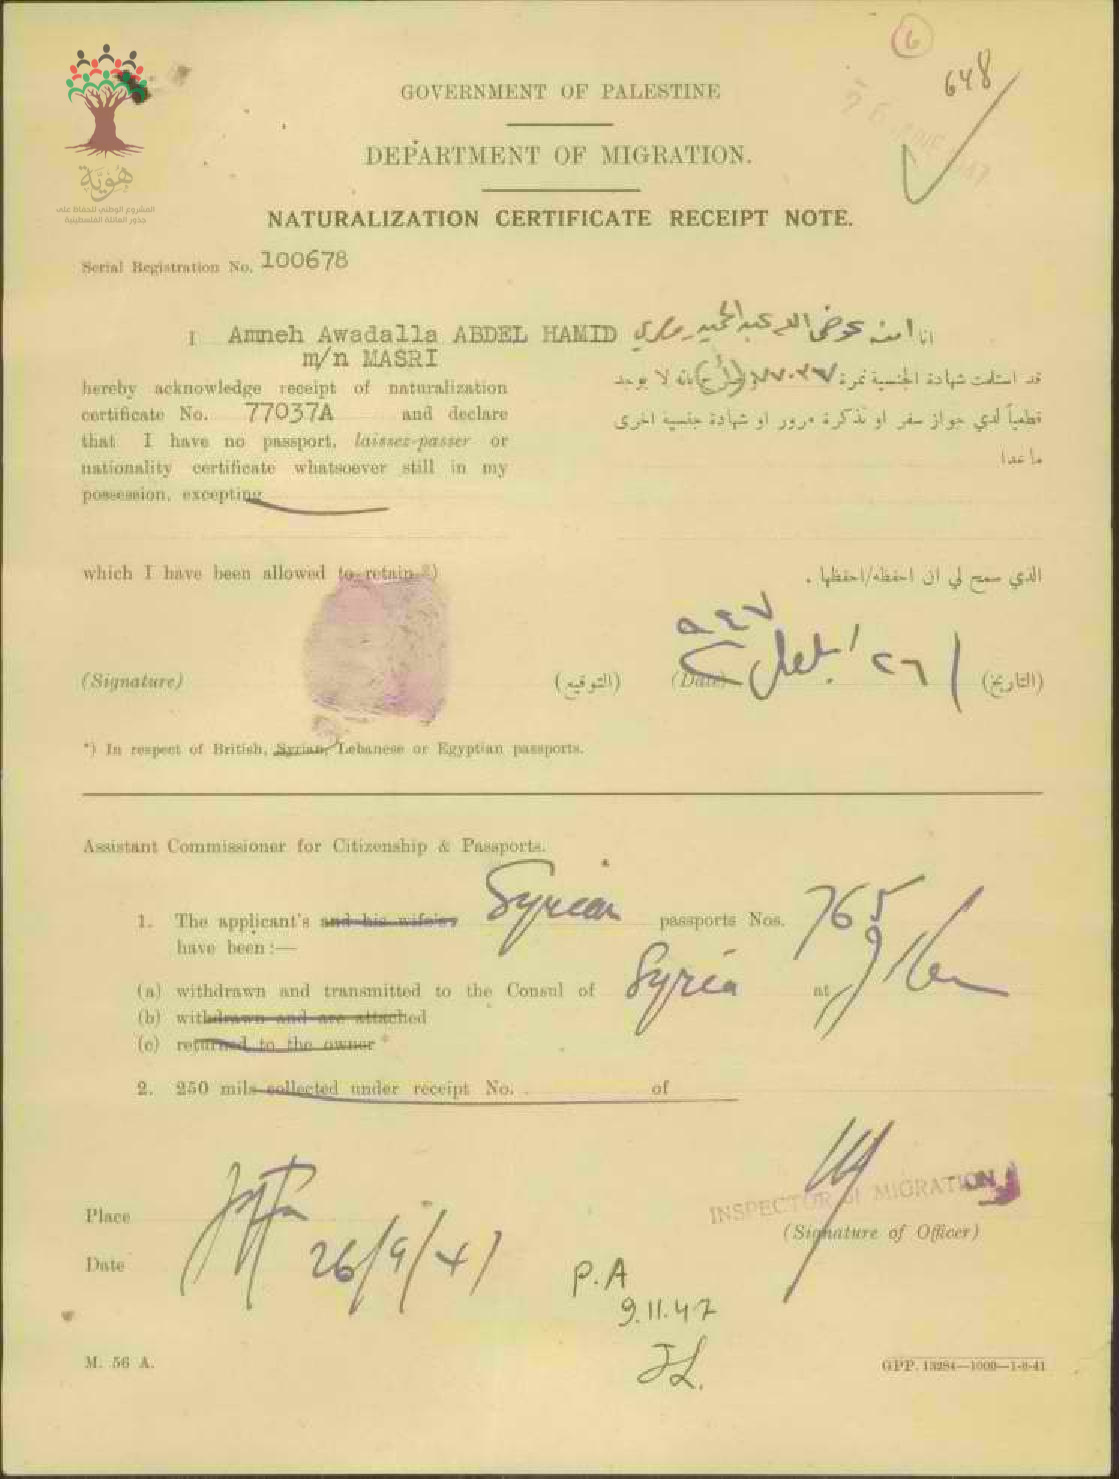 6
648
هوية
المشروع الوطني للحفاظ على
جذور العائلة الفلسطينية
GOVERNMENT OF PALESTINE
DEPARTMENT OF MIGRATION.
NATURALIZATION CERTIFICATE RECEIPT NOTE.
Serial Registration No. 100678
I Amneh Awadalla ABDEL HAMID
m/n MASRI
hereby acknowledge receipt of naturalization
certificate No. 77037A and declare
that I have no passport, laissez-passer or
nationality certificate whatsoever still in my
possession, excepting
which I have been allowed to retain *)
انا امنه عوض الله عبد الحميد مصري
قد استلمت شهادة الجنسية نمرة ٧٧٠٣٧ بانه لا يوجد
قطعياً لدي جواز سفر او تذكرة مرور او شهادة جنسية اخرى
ما عدا
الذي سمح لي ان احفظه/احفظها .
(Signature) (التوقيع)
(Date) ٢٦ ايلول ٩٤٧ (التاريخ)
*) In respect of British, Syrian, Lebanese or Egyptian passports.
Assistant Commissioner for Citizenship & Passports.
1. The applicant's and his wife's Syrian passports Nos. 765
have been:—
(a) withdrawn and transmitted to the Consul of Syria at
(b) withdrawn and are attached
(c) returned to the owner *
2. 250 mils collected under receipt No. of
INSPECTOR OF MIGRATION
(Signature of Officer)
Place Jaffa
Date 26/9/47
P.A
9.11.47
JL.
M. 56 A.
GPP. 13284—1000—1-8-41